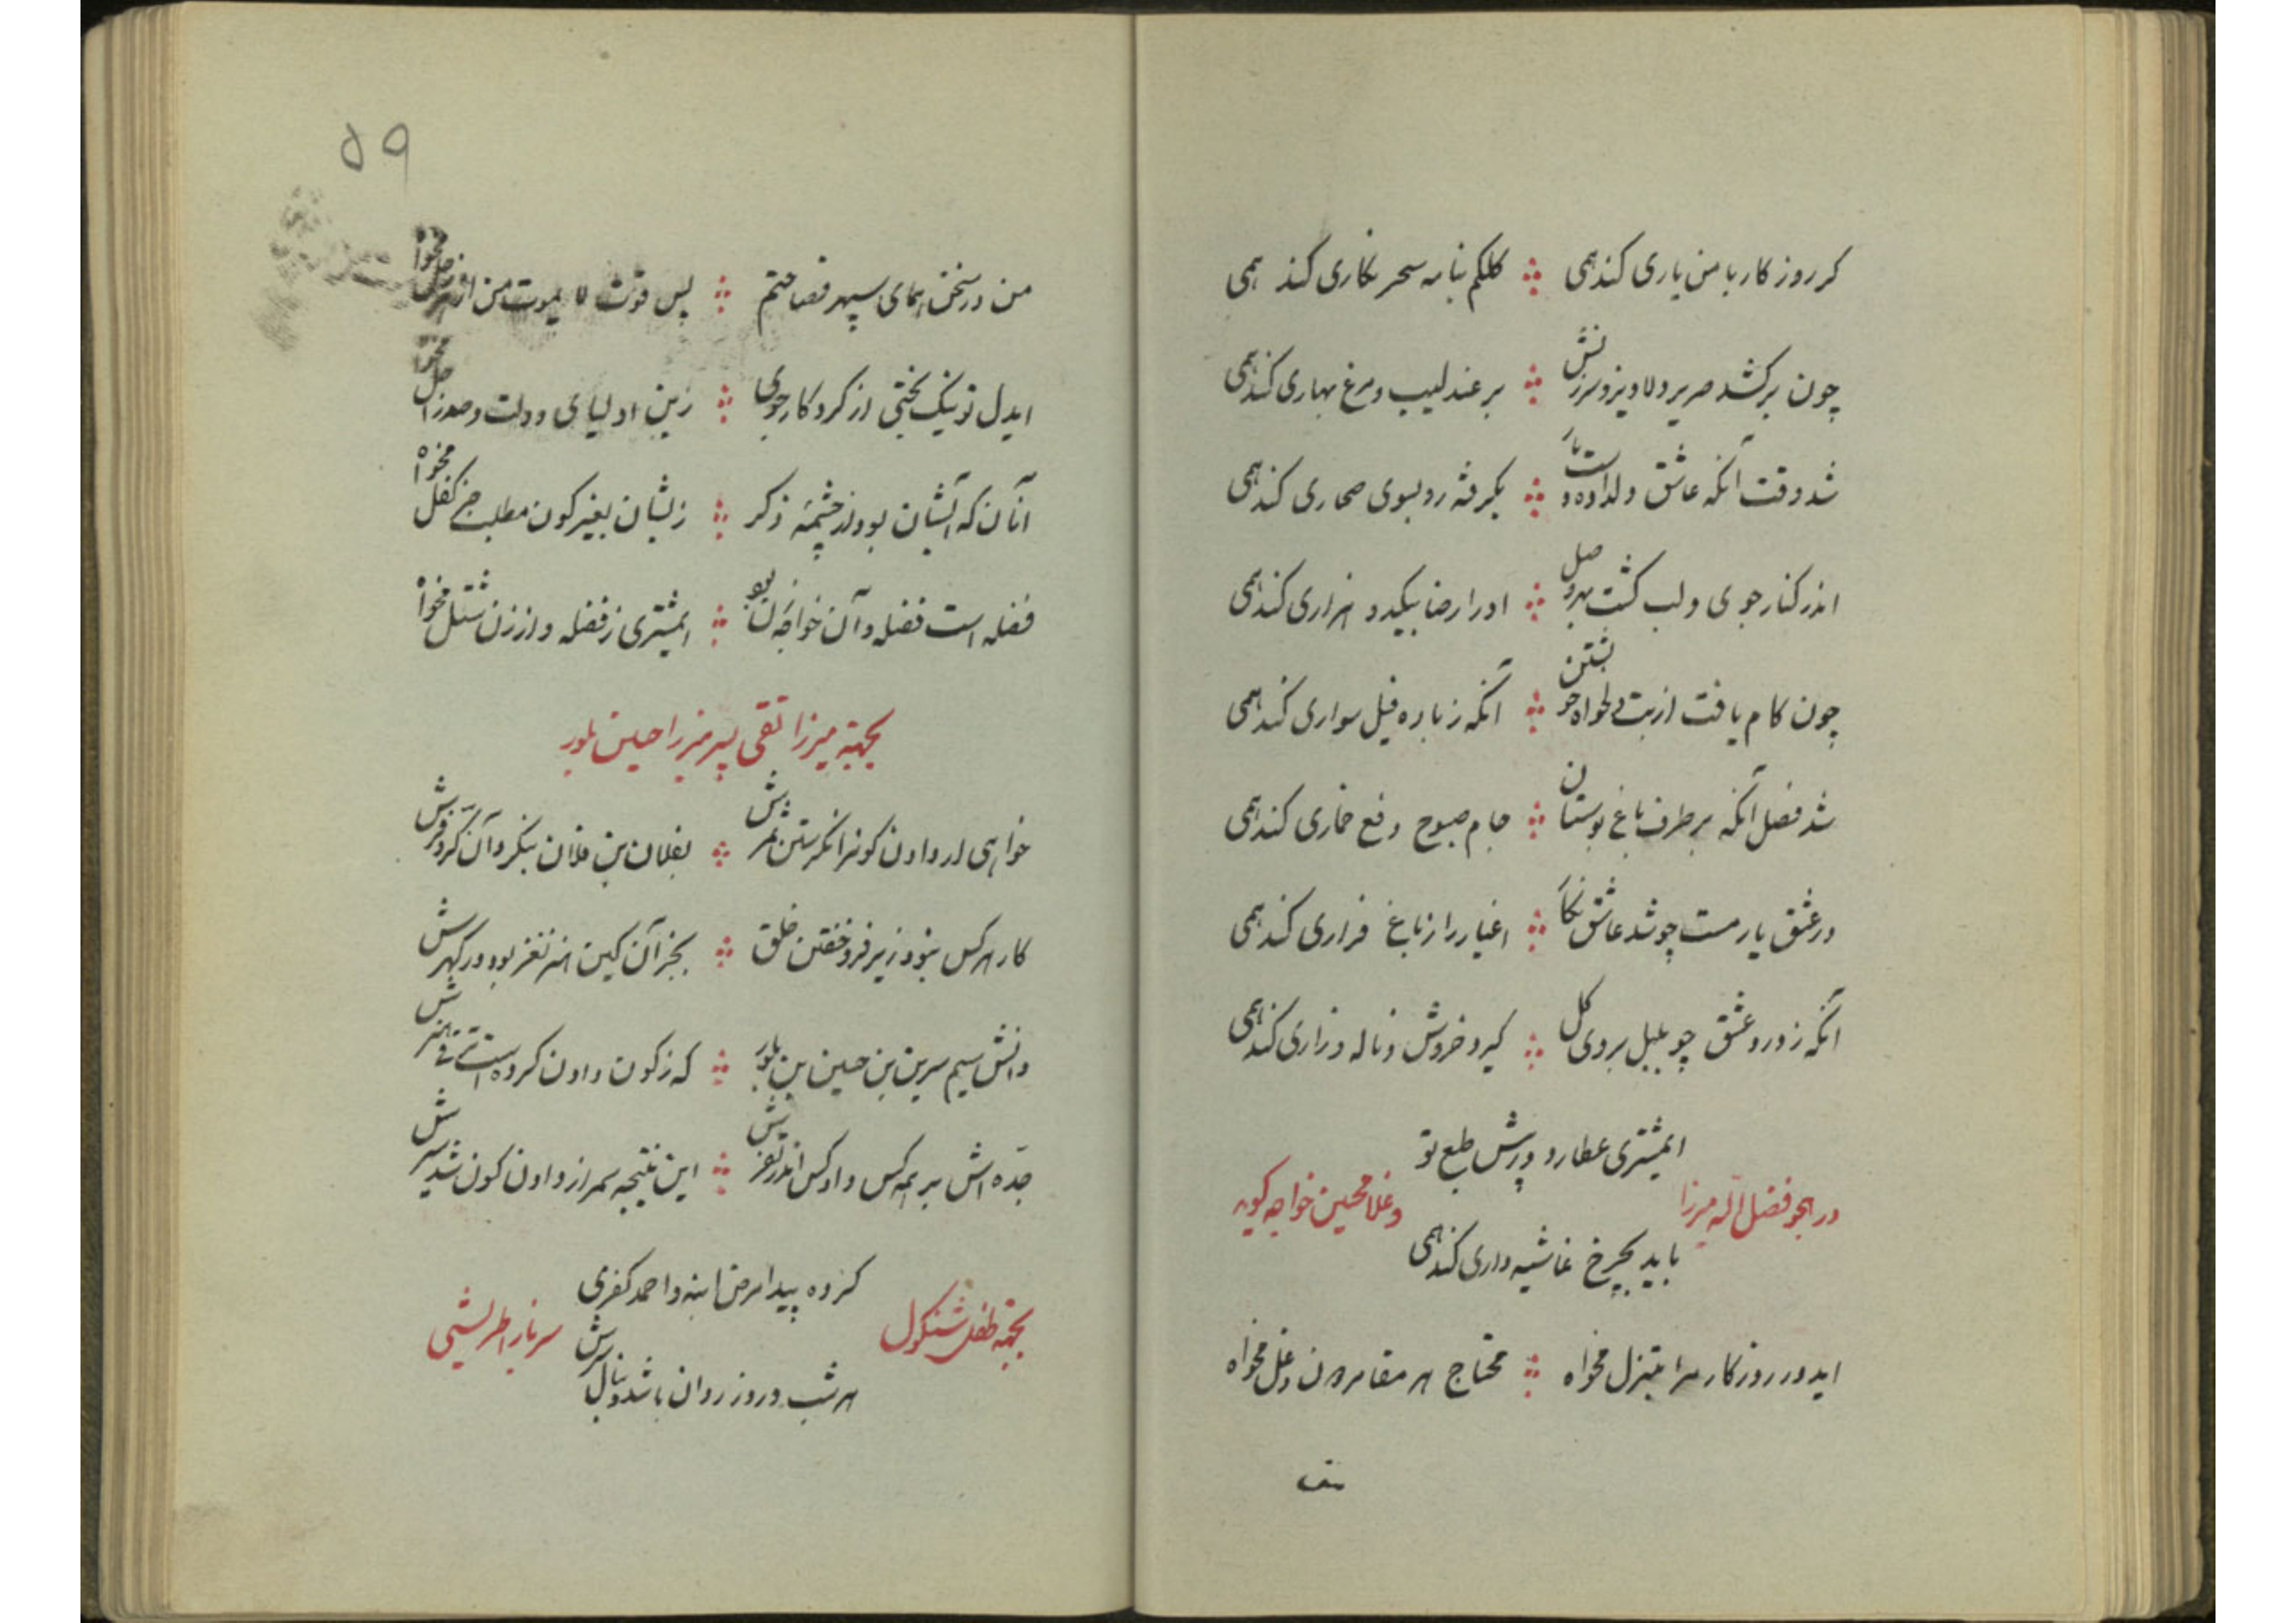 کر روزکار با من یاری کند همی ∴ کلکم بنامه سحر نکاری کند همی
چون برکشد صریر دلاویز و سرزنش ∴ بر عندلیب و مرغ بهاری کند همی
شد وقت آنکه عاشق دلداده دست یار ∴ بکرفته رو بسوی صحاری کند همی
اندر کنار جوی و لب کشت بهر وصل ∴ او را رضا بیکدو هزاری کند همی
چون کام یافت از بت دلخواه خویشتن ∴ آنکه زباره فیل سواری کند همی
شد فصل آنکه بر طرف باغ بوستان ∴ جام صبوح دفع خماری کند همی
در عشق یار مست چو شد عاشق نکار ∴ اغیار را ز باغ فراری کند همی
آنکه ز درد عشق چو بلبل بروی کل ∴ کیرد خروش و ناله و زاری کند همی
ایمشتری عطارد و پرش طبع تو
در هجو فضل الله میرزا
و غلامحسین خواجه کوید
باید بچرخ غاشیه داری کند همی
ایدور روزکار مرا مبتزل مخواه ∴ محتاج هر مقامر دون و دغل مخواه
۵۹
من در سخن همای سپهر فصاحتم ∴ پس قوت لا یموت من از فضل مخواه
ایدل تو نیک بختی از کردکار جوی ∴ زین اولیای دولت و صدر اجل مخواه
آنان که آبشان بود از چشمه ذکر ∴ زیشان بغیر کون مطلب جز کفل مخواه
فضله است فضله و آن خواجه زن بود ∴ ایمشتری ز فضله و از زن مخواه
بجهته میرزا تقی پسر میرزا حسین بلور
خواهی ار دادن کونرا نکرستن ثمرش ∴ بفلان بن فلان بنکر و آن کر و فرش
کار هر کس نبود زیر فرو خفتن خلق ∴ بجز آن کین هنر نغز بود در کهرش
دانش سیم سرین بن حسین بن بلور ∴ که ز کون دادن کرده است هنرش
جده اش بر همه کس داد کس اندر ∴ این نتیجه ثمر از دادن کون شد پسرش
کرده پیدا مرض ابنه و احمد کفری
بجهته طفل شنکول
سرباز
هر شب و روز روان باشد دنبال سرش